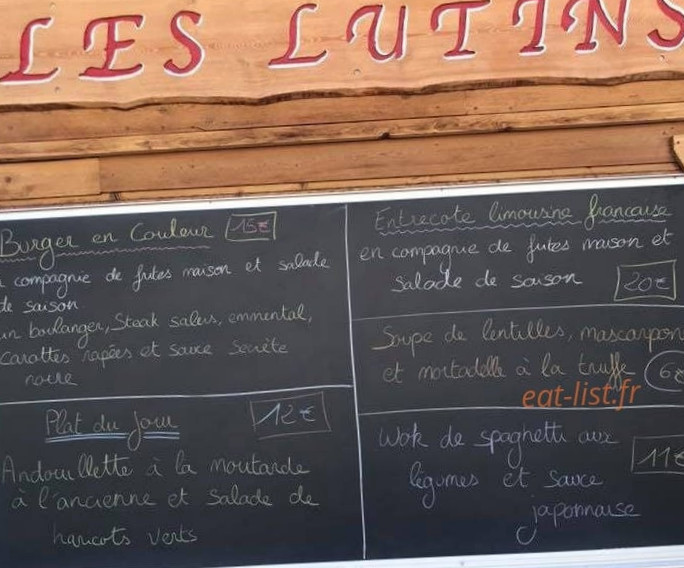 LES LUTINS
Burger en Couleur 15€
compagnie de frites maison et salade
de saison
boulanger, Steak salers, emmental,
carottes rapées et sauce secrète
noire
Plat du jour 12€
Andouillette à la moutarde
à l'ancienne et salade de
haricots verts
Entrecote limousine francaise
en compagnie de frites maison et
salade de saison 20€
Soupe de lentilles, mascarpon
et mortadelle à la truffe 6€
eat-list.fr
Wok de spaghetti aux
légumes et sauce 11€
japonnaise